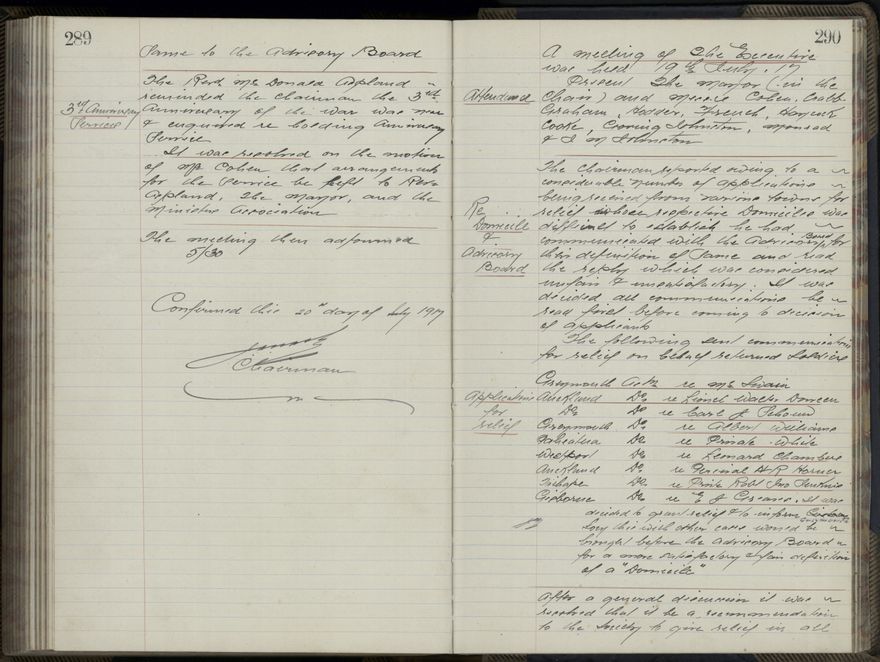 289
Same to the Advisory Board
3rd Anniversary
Service
The Revd Mr Donald Appland
reminded the Chairman the 3rd
Anniversary of the war was near
& enquired re holding Anniversary
Service
It was resolved on the motion
of Mr Cohen that arrangements
for the Service be left to Revd
Appland, the Mayor, and the
Ministers Association
The meeting then adjourned
5/30
Confirmed this 20th day of July 1917
Chairman
290
A meeting of The Executive
was held 19th July. 17
Attendance
Present The Mayor (in the
Chair) and Messrs Cohen, Crabb
Graham, Hodder, French, Hancock
Cooke, Johnston,
& J M Johnston
Re
Domicile
&
Advisory
Board
The Chairman reported owing to a
considerable number of applications
being received from various towns for
relief whose respective Domicile was
difficult to establish he had
communicated with the Advisory Board for
their definition of same and read
the reply which was considered
unfair & unsatisfactory. It was
decided all communications be
read first before coming to decision
of applicants
The following sent communications
for relief on behalf returned soldiers
Applications
for
relief
Greymouth re Mr Swain
Auckland Do re Lionel Walter
Do Do re Carl J
Greymouth Do re Albert Williams
Do re Private White
Westport Do re Leonard Chambers
Auckland Do re Percival H R Horner
Taihape Do re Private Robt Jno Jenkins
Gisborne Do re E J It was
decided to grant relief & to inform Greymouth
this with other cases would be
brought before the Advisory Board
for a more satisfactory & fair definition
of a "Domicile"
After a general discussion it was
resolved that it be a recommendation
to the Society to give relief in all